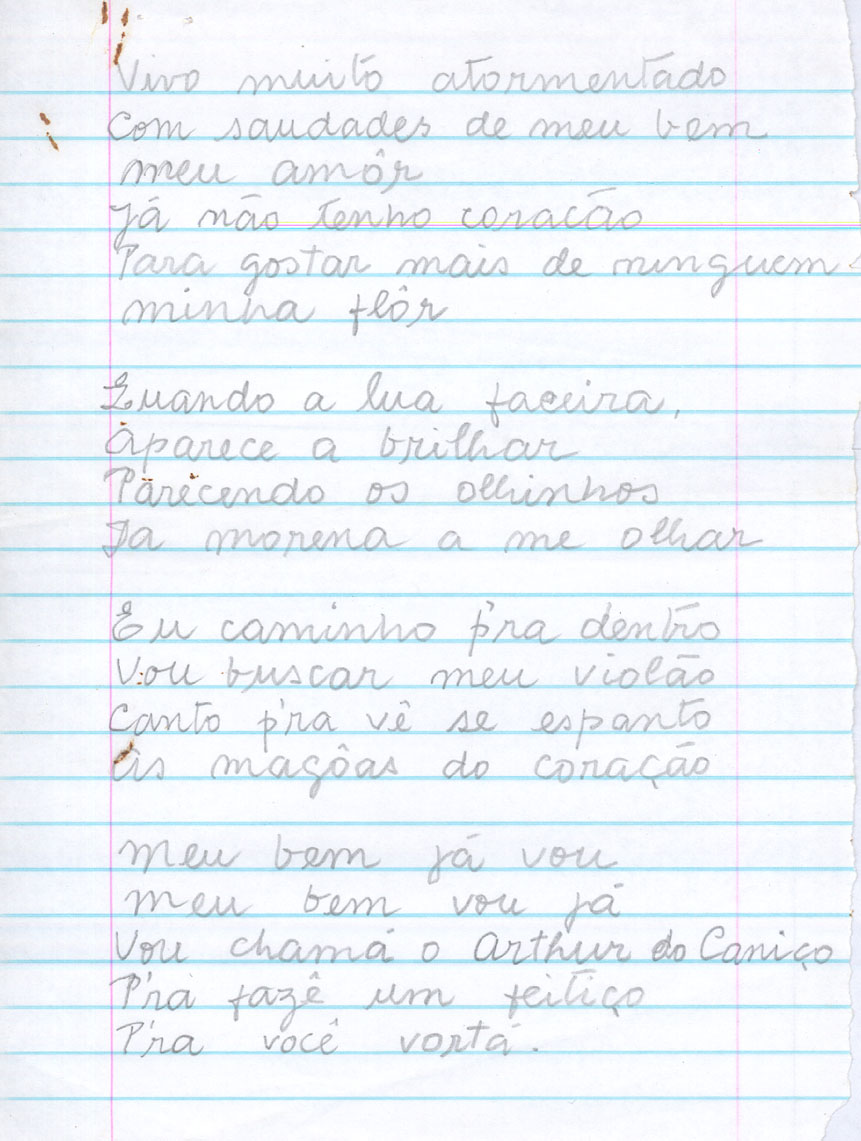 Vivo muito atormentado
Com saudades de meu bem
meu amôr
Já não tenho coracão
Para gostar mais de ninguem
minha flôr
Quando a lua faceira,
Aparece a brilhar
Parecendo os olhinhos
Da morena a me olhar
Eu caminho p'ra dentro
Vou buscar meu violão
Canto p'ra vê se espanto
As magôas do coração
Meu bem já vou
Meu bem vou já
Vou chamá o Arthur do Caniço
P'ra fazê um feitiço
P'ra você vortá.